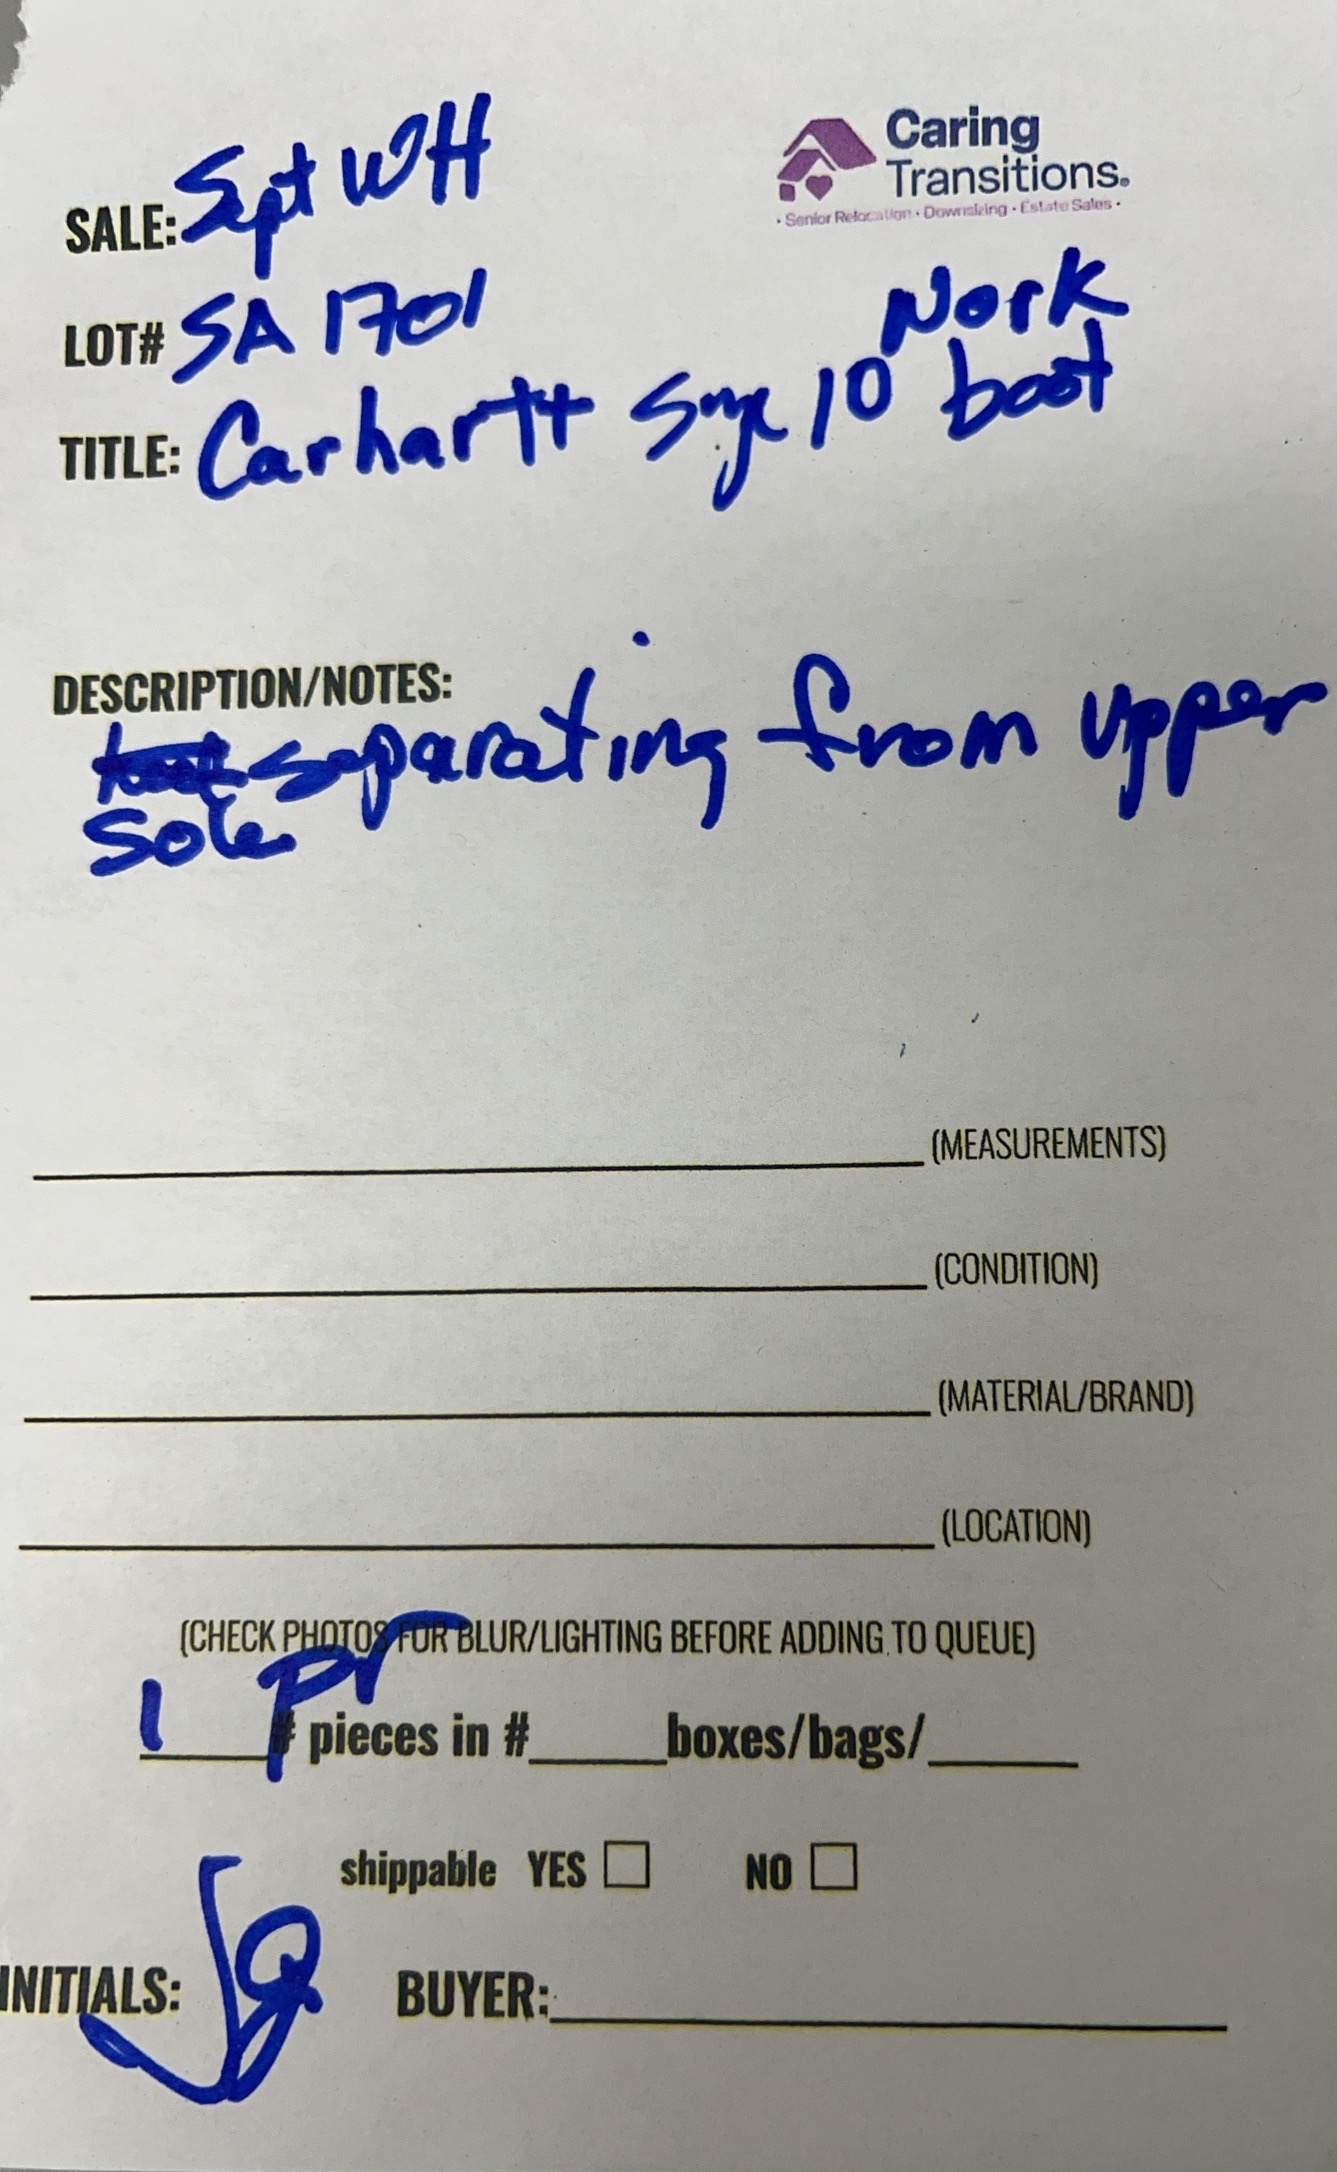 Caring
Transitions®
• Senior Relocation • Downsizing • Estate Sales •
SALE: Sept WH
LOT# SA 1701
Work
TITLE: Carhartt Size 10 boot
DESCRIPTION/NOTES:
separating from upper
sole
(MEASUREMENTS)
(CONDITION)
(MATERIAL/BRAND)
(LOCATION)
(CHECK PHOTOS FOR BLUR/LIGHTING BEFORE ADDING TO QUEUE)
1 pr
# pieces in # boxes/bags/
shippable YES NO
INITIALS: BUYER: